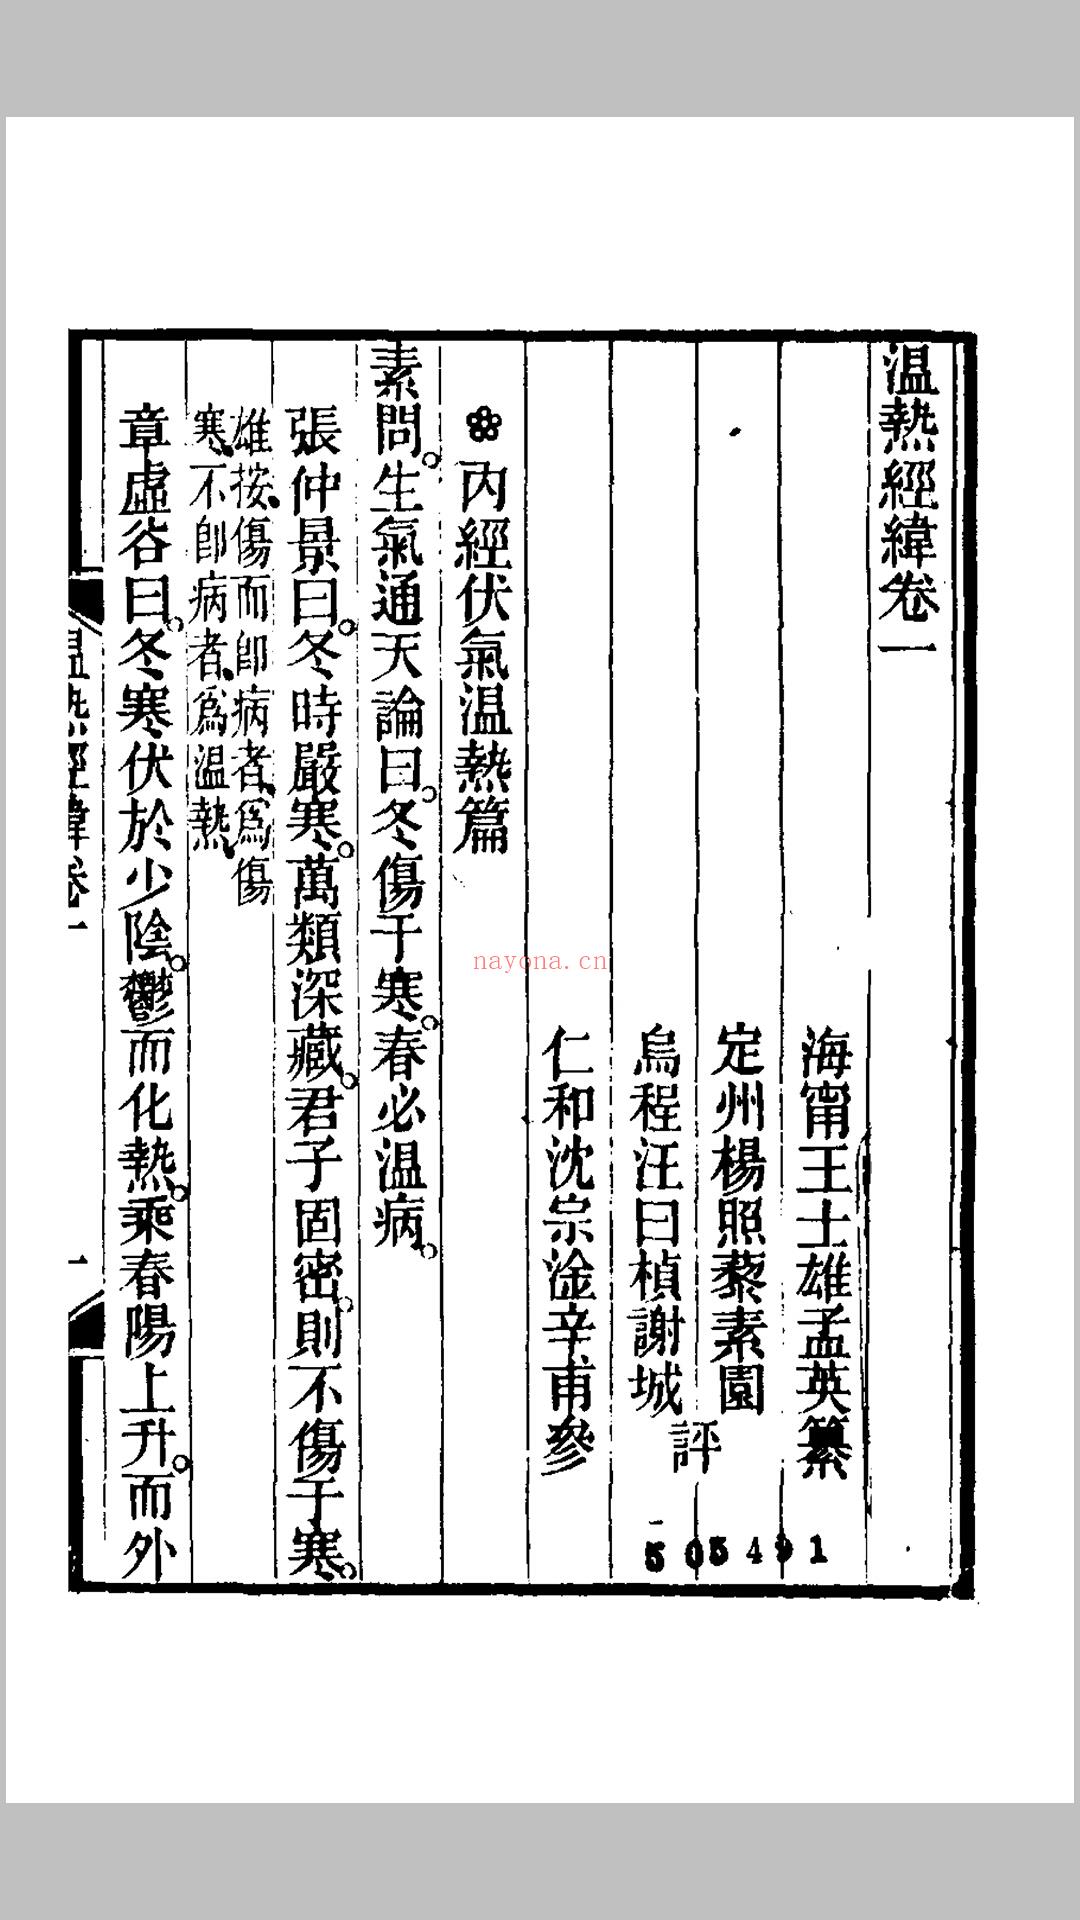 温熱經緯卷一
海甯王士雄孟英纂
定州楊照藜素園
烏程汪曰楨謝城
評
仁和沈宗淦辛甫參
內經伏氣温熱篇
素問。生氣通天論曰。冬傷于寒。春必温病。
張仲景曰。冬時嚴寒。萬類深藏。君子固密。則不傷于寒。
雄按、傷而卽病者、爲傷
寒、不卽病者、爲温熱、
章虛谷曰。冬寒伏於少陰。鬱而化熱。乘春陽上升。而外
温熱經緯卷一
一
505491
nayona.cn